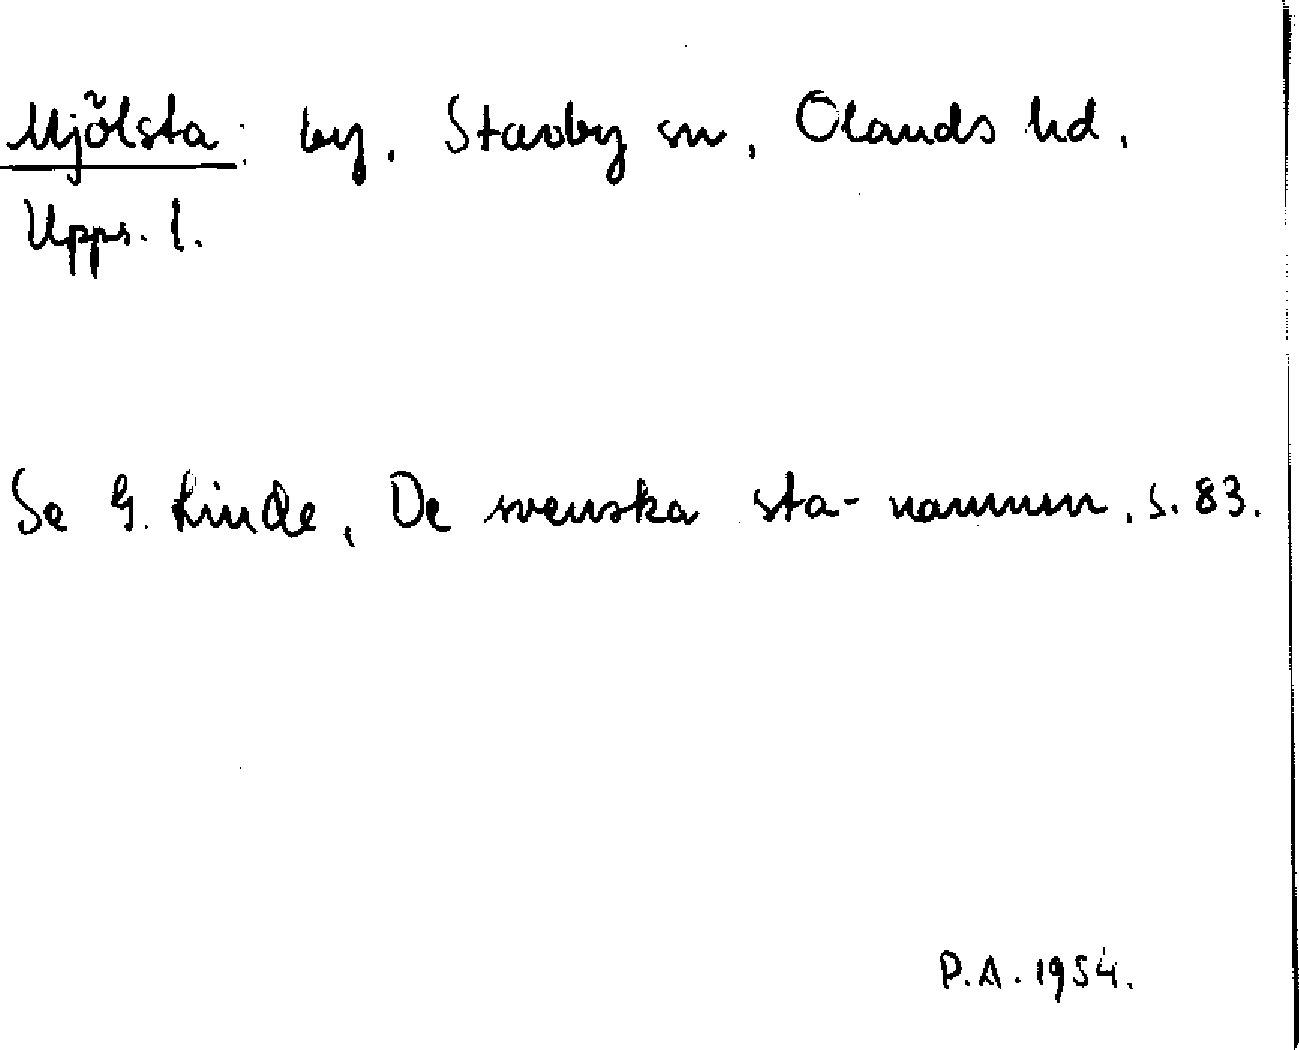 Mjölsta: by, Stavby sn, Olands hd,
Upps. l.
Se G. Linde, De svenska sta-namnen, s. 83.
P.A. 1954.